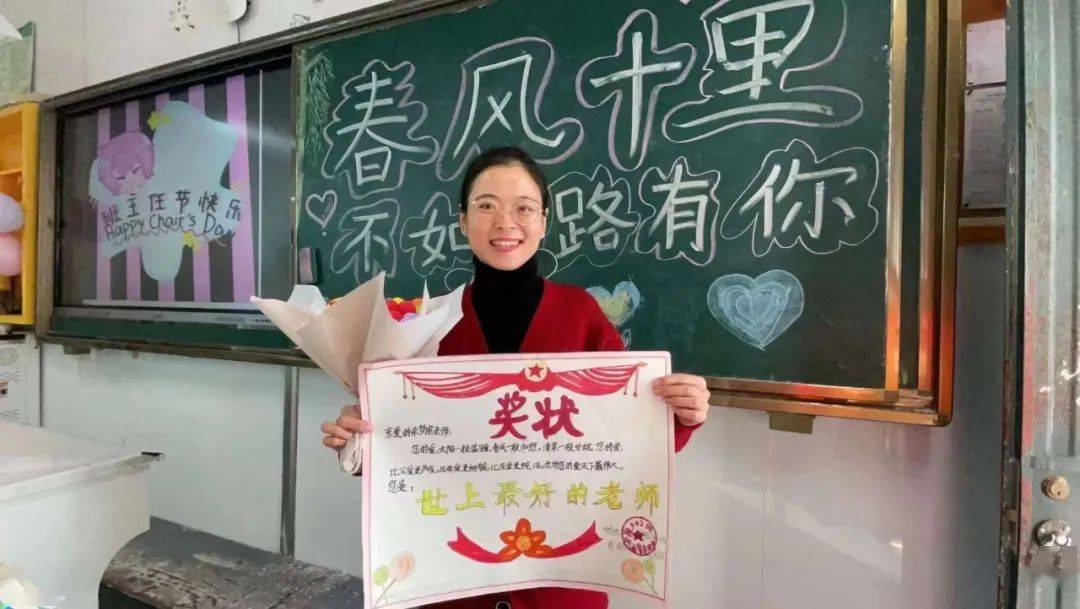 春风十里
不如路有你
班主任节快乐
Happy Chair's Day
奖状
亲爱的 老师:
您的爱,太阳一般温暖,春风一般和煦,清泉一般甘甜,您的爱,
比父爱更严峻,比母爱更细腻,比友爱更纯洁。老师您的爱天下最伟大。
您是:
世上最好的老师